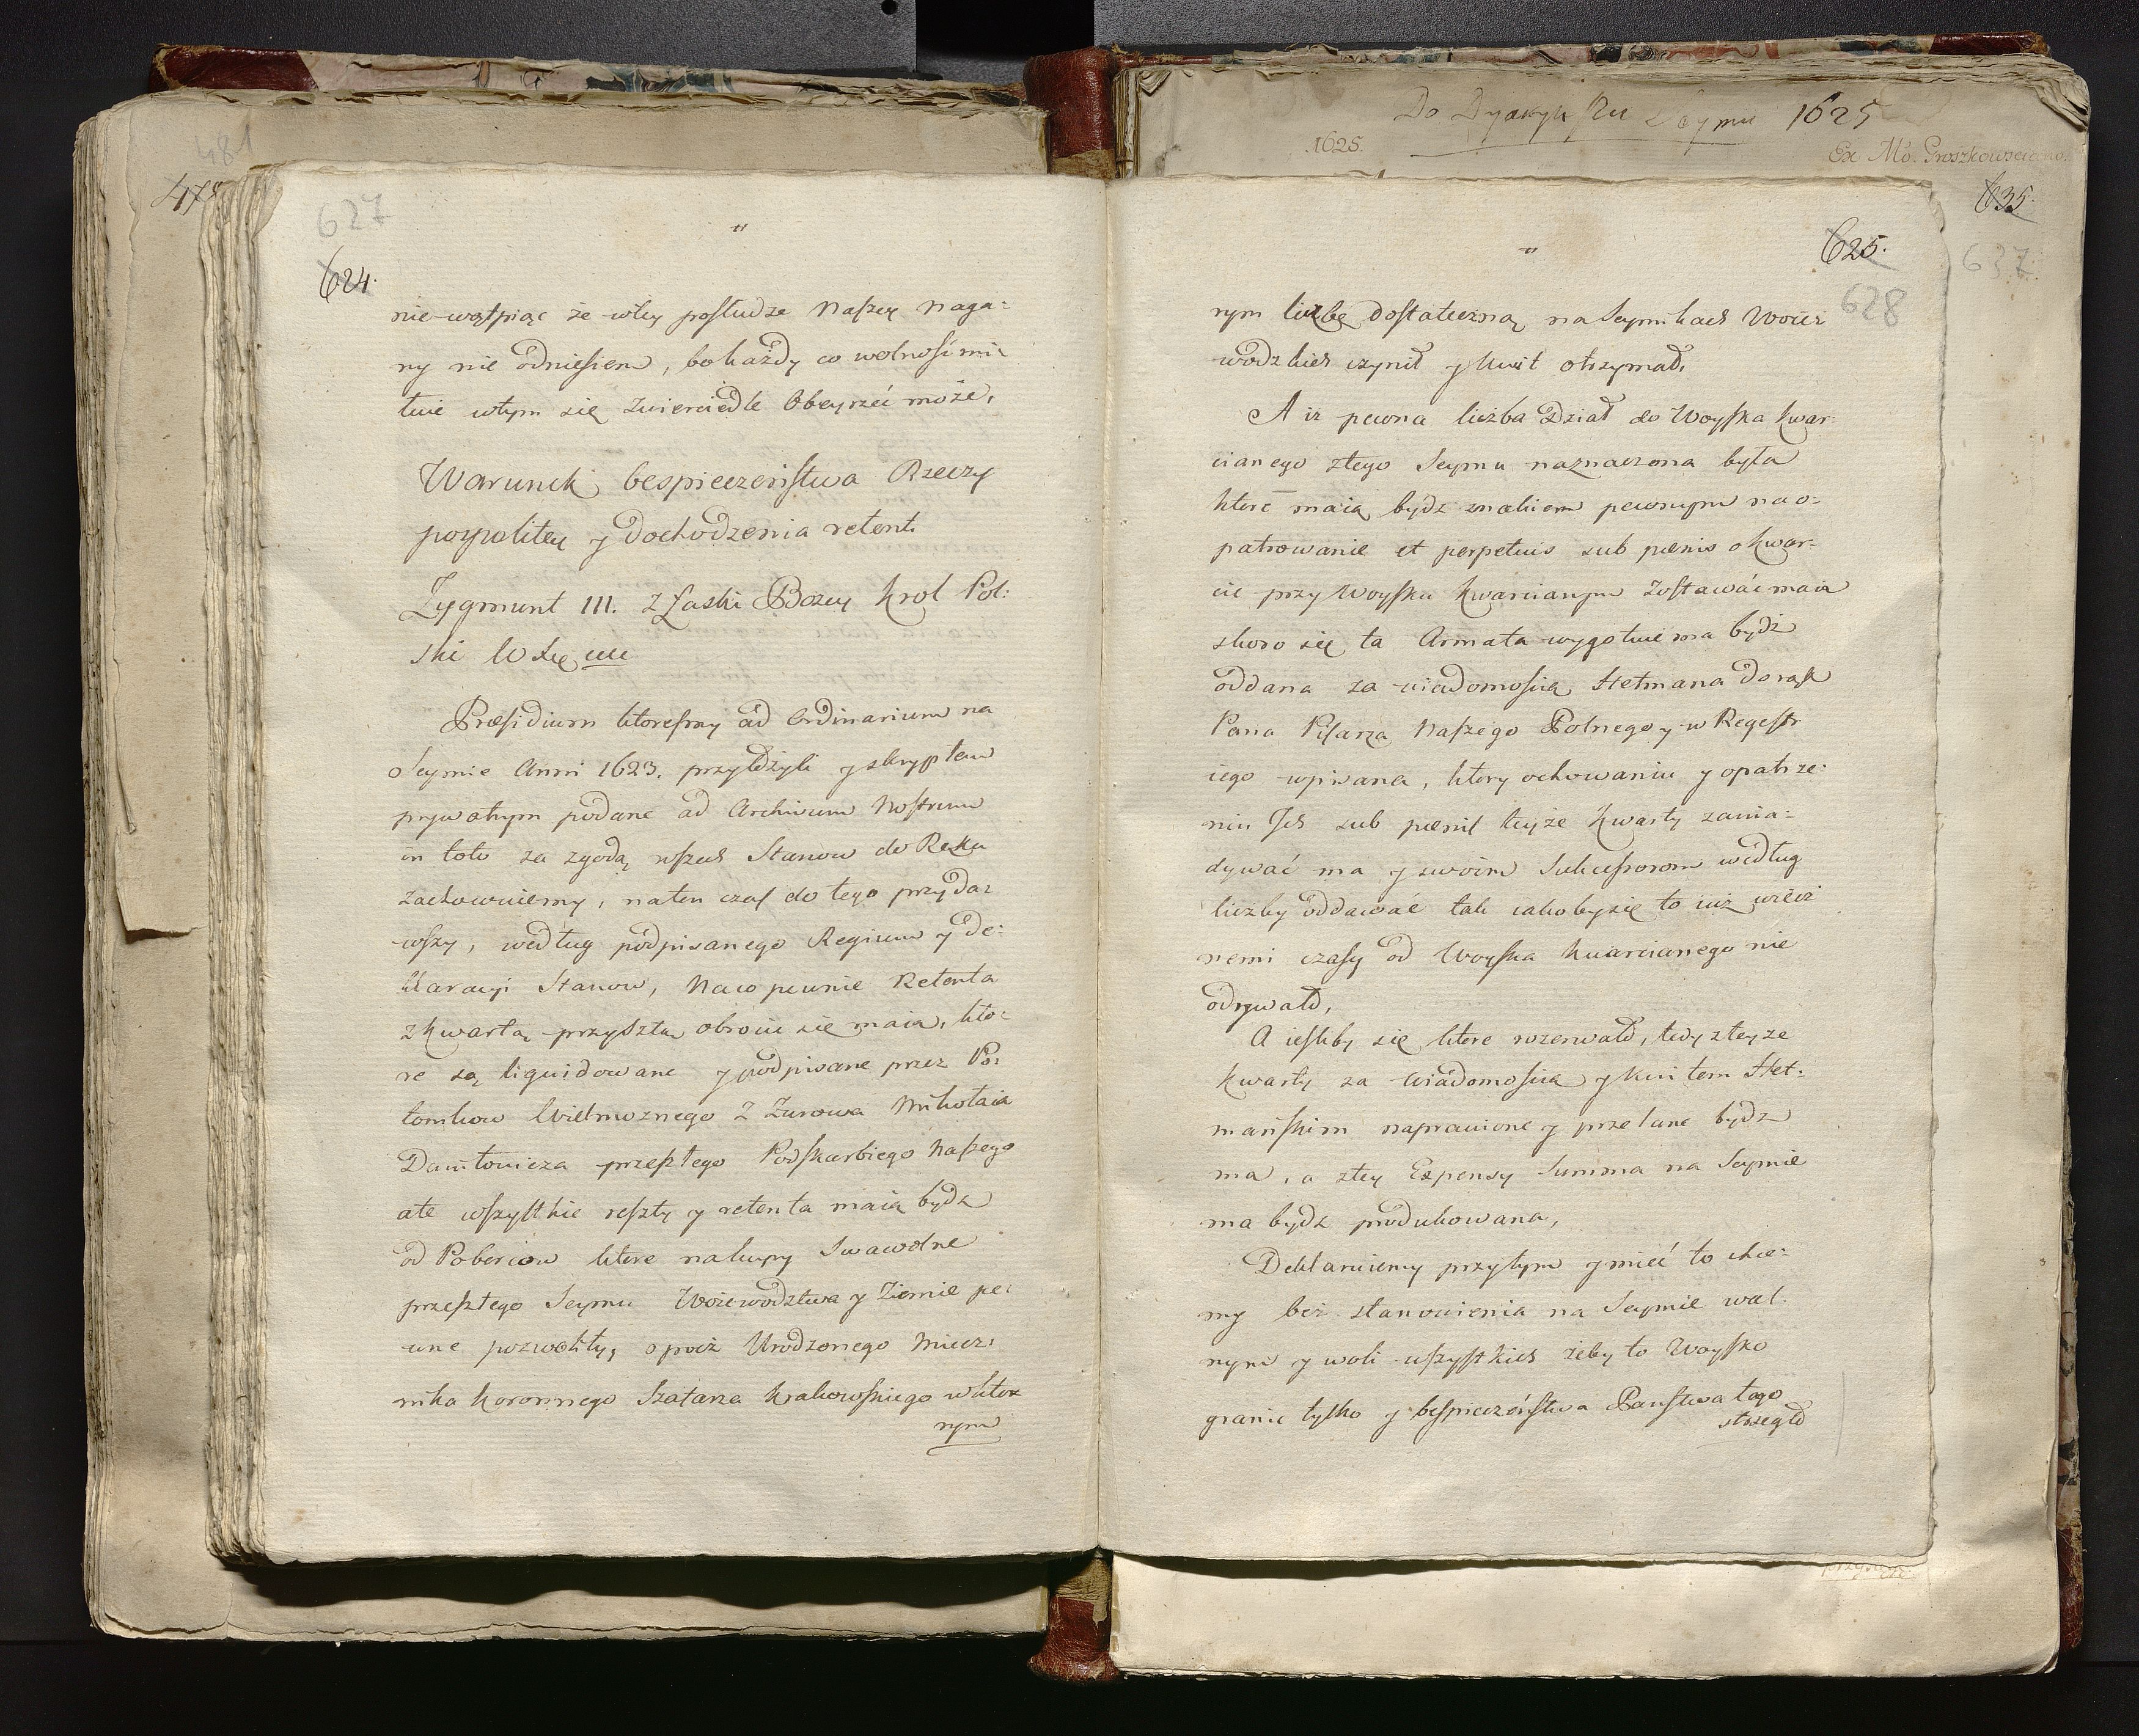 481
478
627
624.
"
nie wątpiąc że wtey posłudze Naszey Naga:
ny nie odniesiem, bo każdy co wolnosi mi:
tuie wtym się zwierciedle Obeyrzeć może,
Warunek bespieczeństwa Rzeczy
pospolitey y dochodzenia retent.
Zygmunt III. z Łaski Bozey Krol Pol:
ski W Xę
Præsidium ktoresmy ad Ordinarium na
Seymie Anni 1623. przyłożyli y skryptem
prywatnym podane ad Archivum Nostrum
in toto za zgodą wszech Stanow do Reku
zachowuiemy, naten czas do tego przyda:
wszy, według podpisanego Regium y De:
klaracyi Stanow, Naco pewnie Retenta
z kwartą przyszłą obrocic się maią, kto:
re są liquidowane y podpisane przez Po:
tomkow Wielmoznego z Zurowa Mikołaia
Daniłowicza przeszłego Podskarbiego Naszego
ale wszystkie reszty y retenta maią bydz
od Poborcow ktore nakupy Swawolne
przeszłego Seymu Woiewodztwa y Ziemie pe:
wne pozwoliły, oprocz Urodzonego Miecz:
nika Koronnego Szafarza Krakowskiego w ktor
rym
Do Seymu 1625
1625.
Ex Mo. Groszkowsciano
635.
637.
"
625.
628
rym liczbę dostateczną na Seymikach Woie:
wodzkich czynił y kwit otrzymał,
A iz pewna liczba Dział do Woyska kwar:
cianego ztego Seymu naznaczona była
ktore maią bydz znakiem pewnym na o:
patrowanie et perpetuis sub pœnis o kwar:
cie przy Woysku kwarcianym zostawać maia
skoro się ta Armata wygotuie ma bydź
oddana za wiadomoscią Hetmana do rąk
Pana Pisarza Naszego Polnego y w Regestr
iego wpisana, ktory ochowaniu y opatrze:
niu Ich sub pœnis teyże kwarty zawia:
dywać ma y swoim Sukcessorom według
liczby oddawać tak iakoby się to iuż wiecz
nemi czasy od Woyska kwarcianego nie
odrywało,
A iesliby się ktore rozerwało, tedy zteyze
kwarty za wiadomoscią y kwitem Het:
mańskim naprawione y przelane bydz
ma, a ztey Expensy Summa na Seymie
ma bydz produkowana,
Deklaruiemy przytym y mieć to chce:
my bez stanowienia na Seymie wal:
nym y woli wszystkich żeby to Woysko
granic tylko y bespieczeństwa Panstwa tego
strzegło